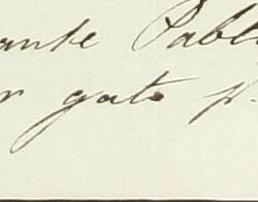 ante Pabl
r gato p.